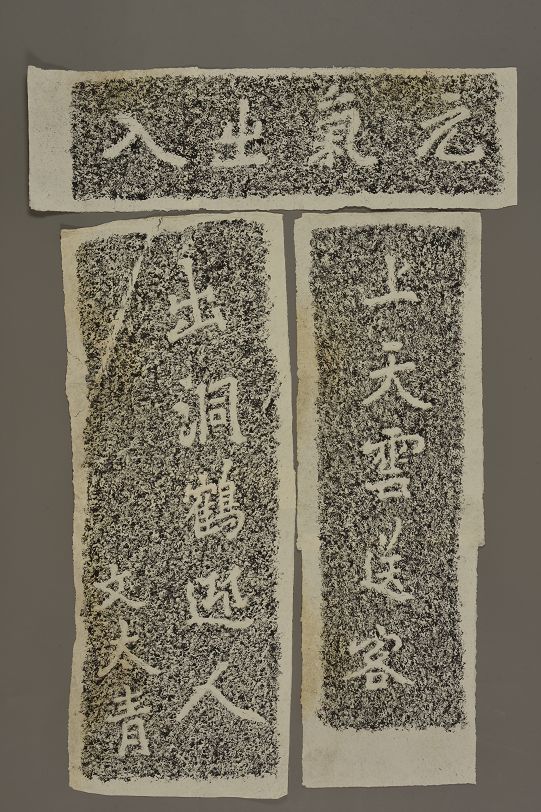 元氣出入
上天雲送客
出洞鶴迎人
文太青